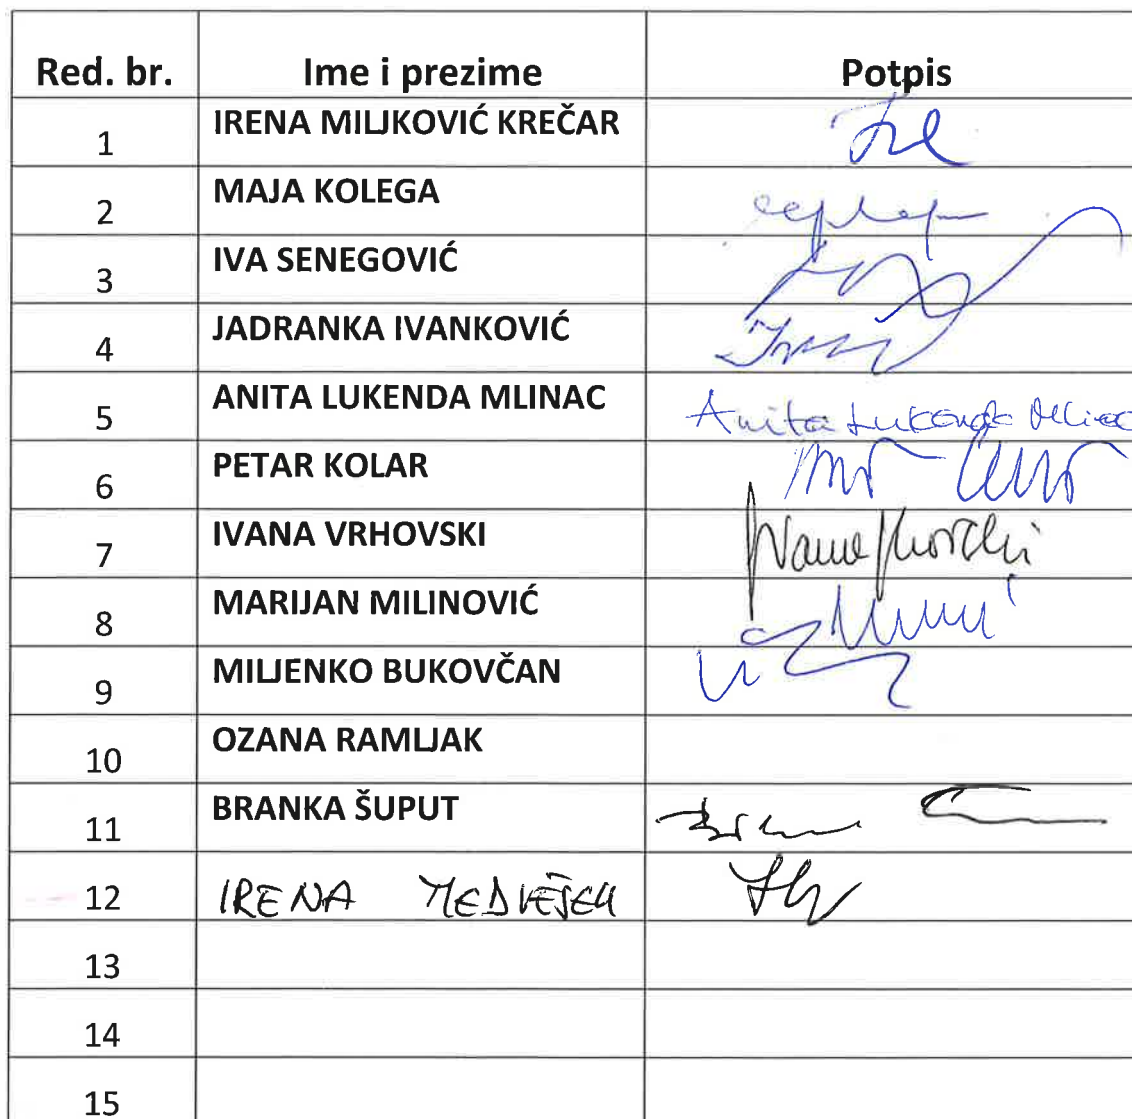 Red. br. Ime i prezime Potpis
1 IRENA MILJKOVIĆ KREČAR
2 MAJA KOLEGA
3 IVA SENEGOVIĆ
4 JADRANKA IVANKOVIĆ
5 ANITA LUKENDA MLINAC Anita Lukenda Mlinac
6 PETAR KOLAR
7 IVANA VRHOVSKI Ivana Vrhovski
8 MARIJAN MILINOVIĆ
9 MILJENKO BUKOVČAN
10 OZANA RAMLJAK
11 BRANKA ŠUPUT
12 IRENA MEDVEŠEK
13
14
15